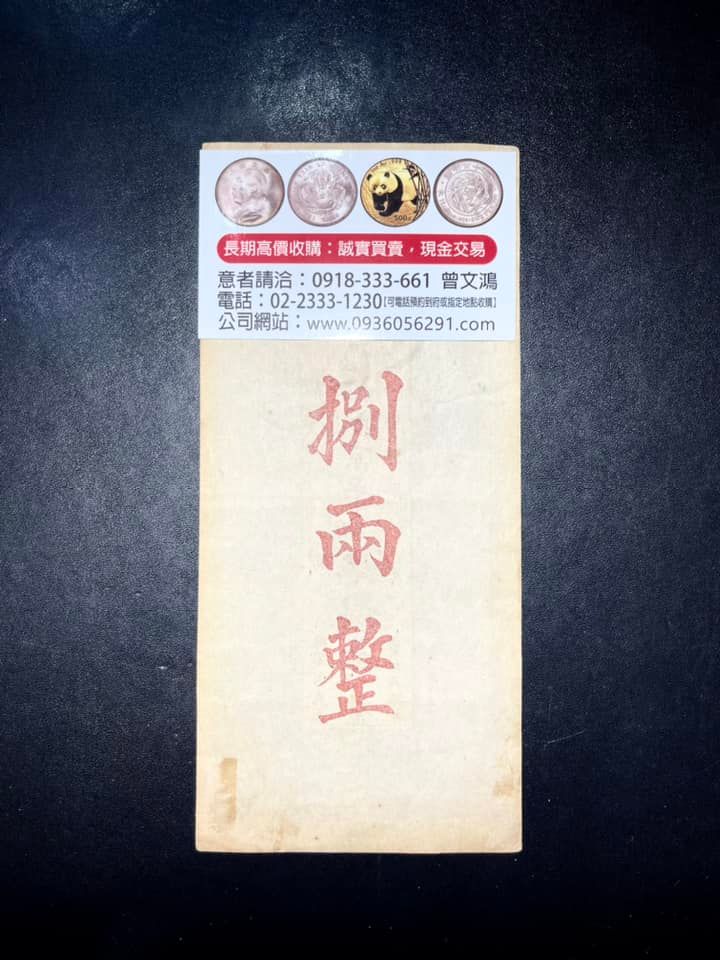 500元
長期高價收購：誠實買賣，現金交易
意者請洽：0918-333-661 曾文鴻
電話：02-2333-1230【可電話預約到府或指定地點收購】
公司網站：www.0936056291.com
捌兩整